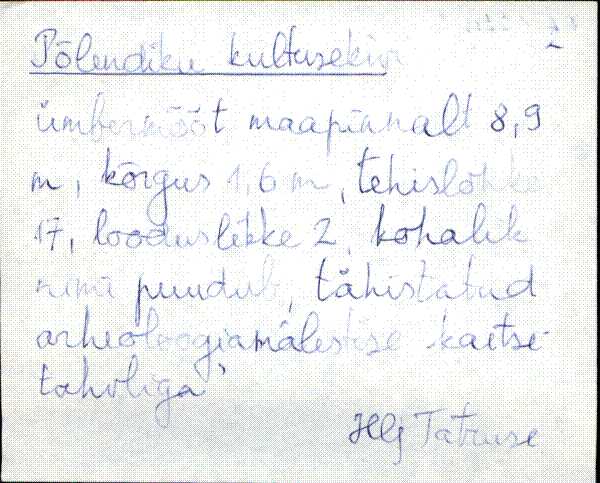 Põlendiku kultusekivi
ümbermõõt maapinnalt 8,9
m, kõrgus 1,6 m, tehislohke
17, looduslikke 2, kohalik
nimi puudub, tähistatud
arheoloogiamälestise kaitse-
tahvliga
Tatruse